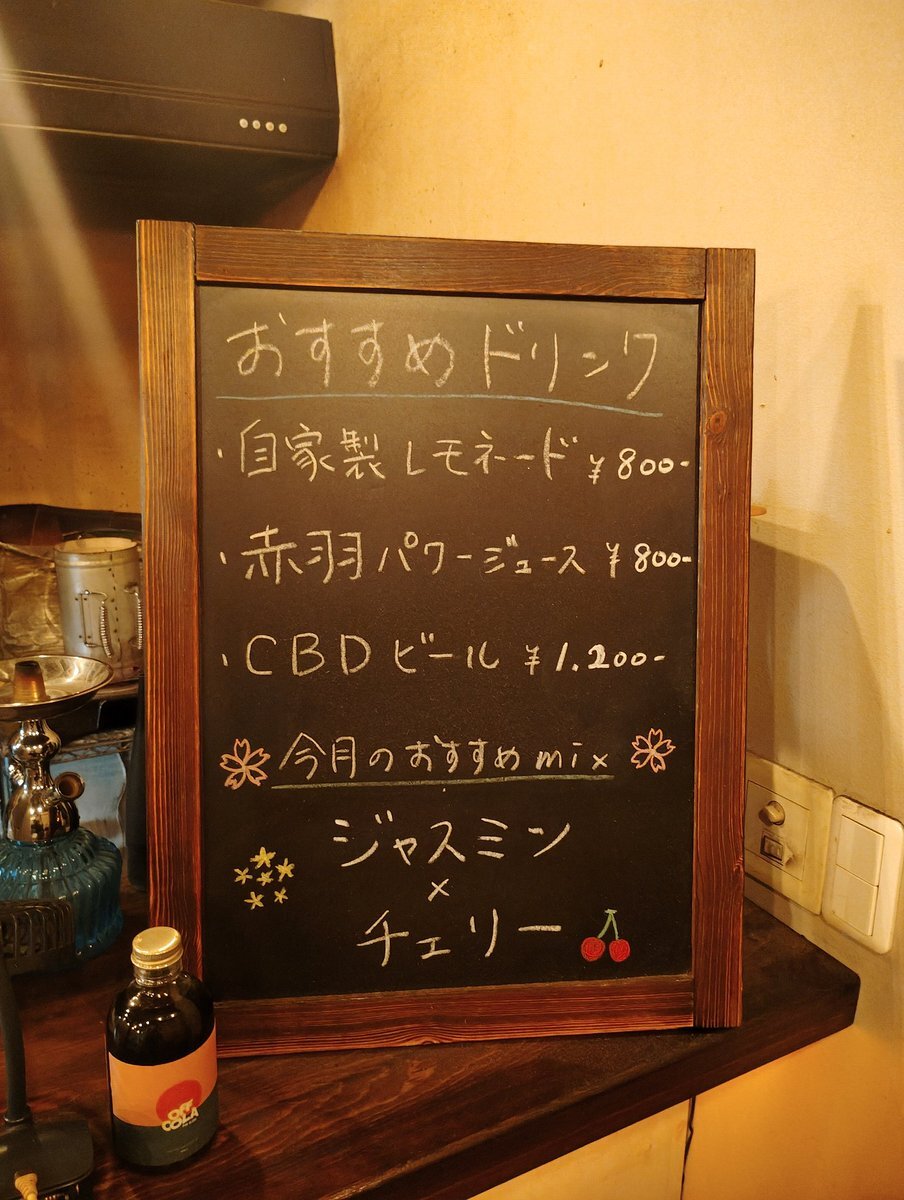 おすすめドリンク
・自家製レモネード ¥800-
・赤羽パワージュース ¥800-
・CBDビール ¥1.200-
今月のおすすめmix
ジャスミン
×
チェリー
OFF
COLA